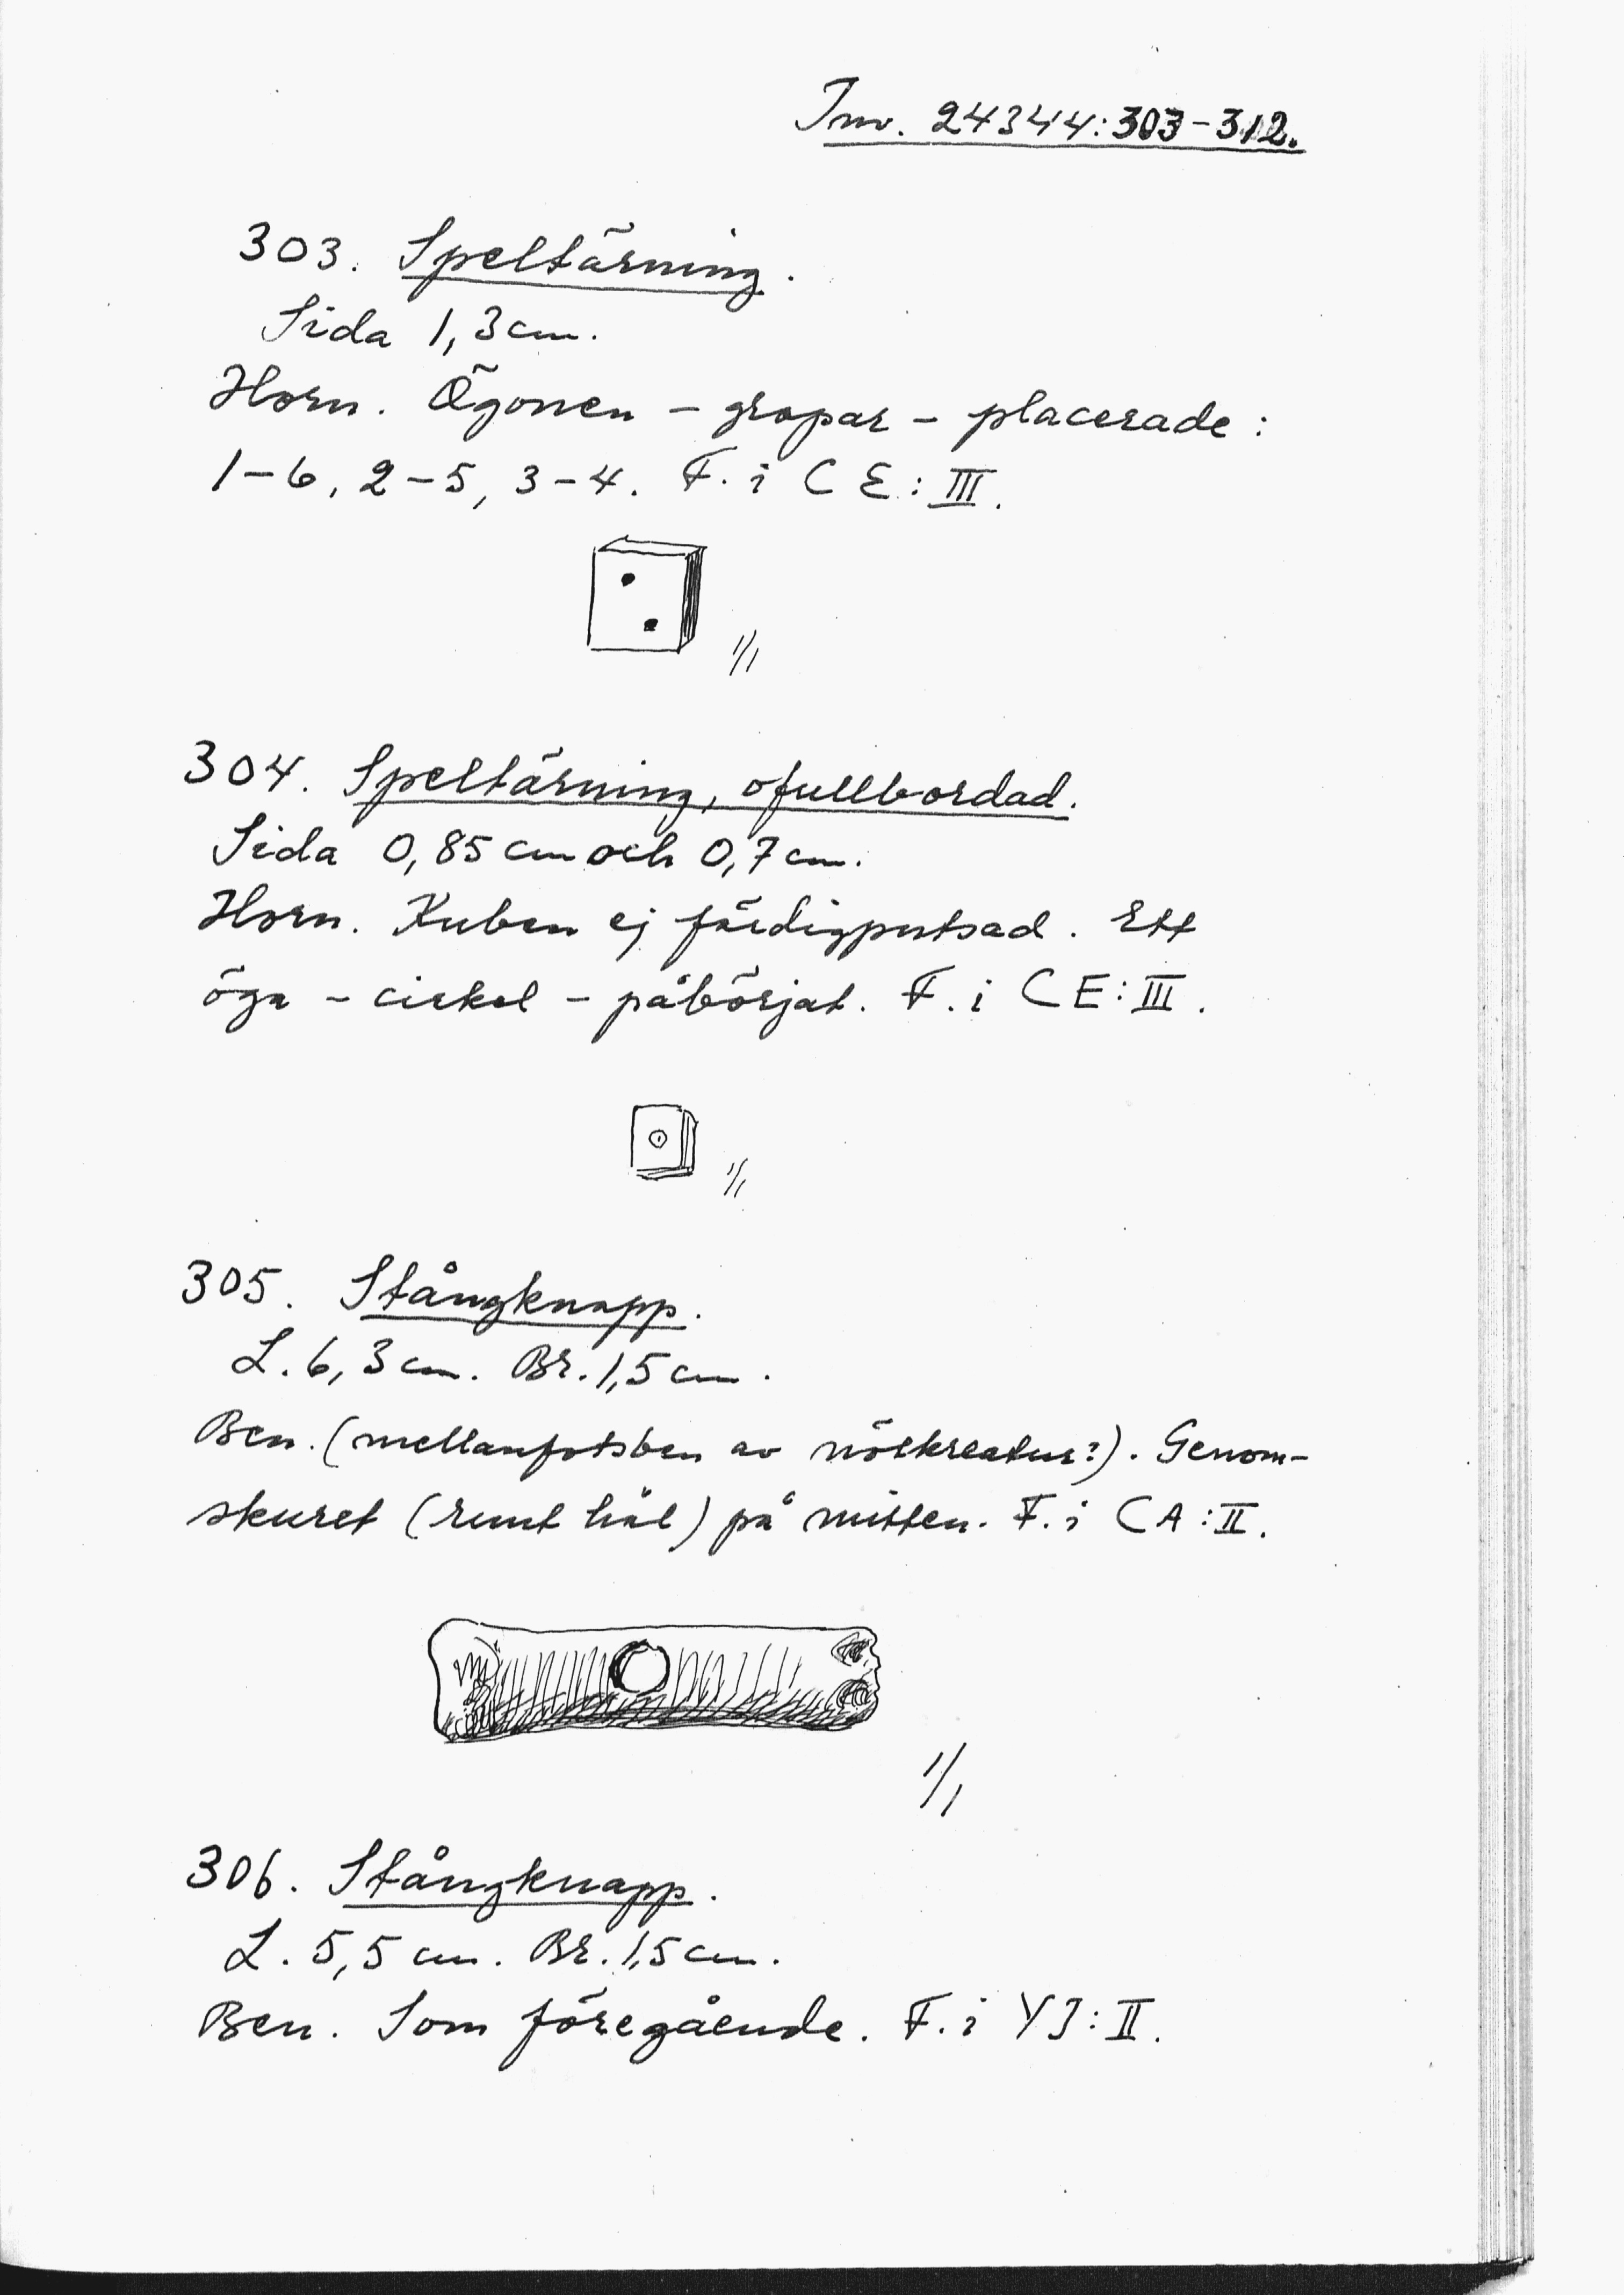 Inv. 24344:303-312.
303. Speltärning.
Sida 1,3 cm.
Horn. Ögonen - gropar - placerade:
1-6, 2-5, 3-4. F. i CE:III.
1/1
304. Speltärning, ofullbordad.
Sida 0,85 cm och 0,7 cm.
Horn. Kuben ej färdigputsad. Ett
öga - cirkel - påbörjat. F. i CE:III.
1/1
305. Stångknapp.
L. 6,3 cm. Br. 1,5 cm.
Ben. (mellanfotsben av nötkreatur?). Genom-
skuret (runt hål) på mitten. F. i CA:II.
1/1
306. Stångknapp.
L. 5,5 cm. Br. 1,5 cm.
Ben. Som föregående. F. i YJ:II.